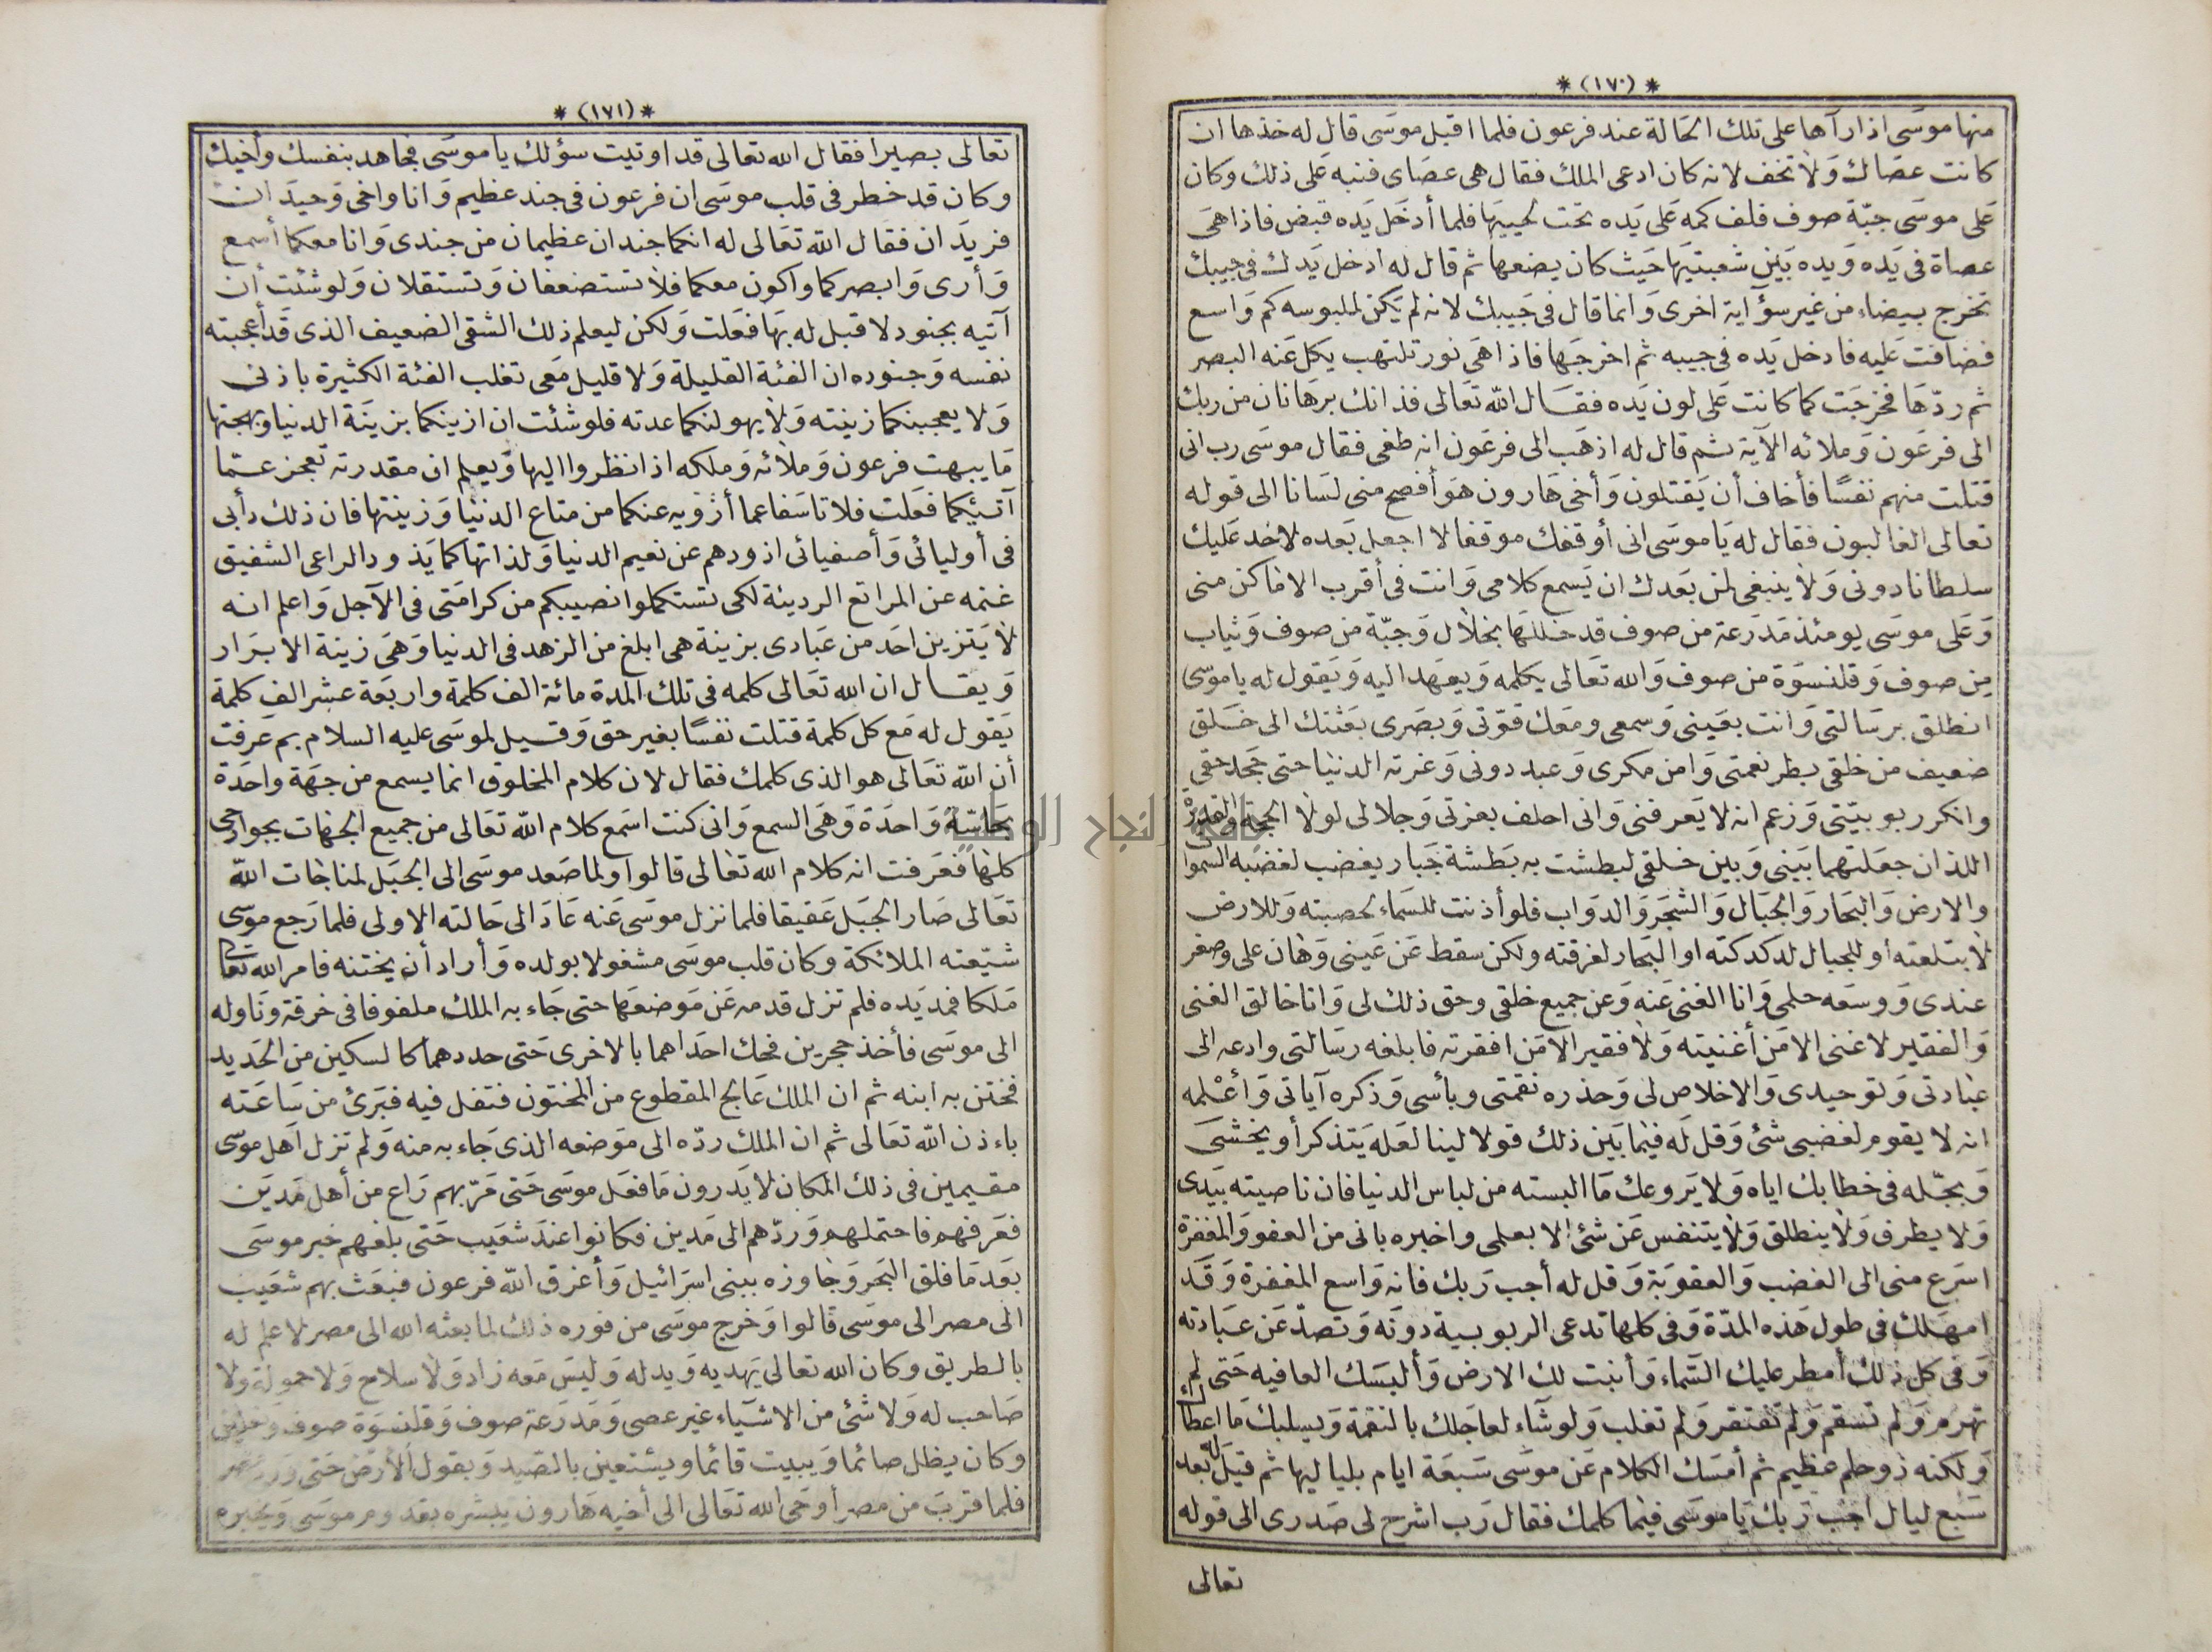 * (١٧٠) *
منها موسى اذا رآها على تلك الحالة عند فرعون فلما اقبل موسى قال له خذها ان
كانت عصاك ولا تخف لانه كان ادعى الملك فقال هى عصاى فنبه على ذلك وكان
على موسى جبّة صوف فلف كمه على يده تخت لحييها فلما أدخل يده قبض فاذا هى
عصاة فى يده ويده بين شعبتيها حيث كان يضعها ثم قال له ادخل يدك فى جيبك
تخرج بيضاء من غير سوٓ آية اخرى وانما قال فى جيبك لانه لم يكن لملبوسه كم واسع
فضاقت عليه فادخل يده فى جيبه ثم اخرجها فاذا هى نور تلتهب يكل عنه البصر
ثم ردّها فخرجت كما كانت على لون يده فقال الله تعالى فذانك برهانان من ربك
الى فرعون وملائه الآية ثم قال له اذهب الى فرعون انه طغى فقال موسى رب انى
قتلت منهم نفسًا فأخاف أن يقتلون وأخى هارون هو أفصح منى لسانا الى قوله
تعالى الغالبون فقال له يا موسى انى أوقفك موقفا لا اجعل بعده لاحد عليك
سلطانا دونى ولا ينبغى لمن بعدك ان يسمع كلامى وانت فى أقرب الاماكن منى
وعلى موسى يومئذ مدرعة من صوف قد خللها بخلال وجبّة من صوف وثياب
من صوف وقلنسوة من صوف والله تعالى يكلمه ويعهد اليه ويقول له يا موسى
انطلق برسالتى وانت بعينى وسمعى ومعك قوّتى وبصرى بعثتك الى خلق
ضعيف من خلقى بطر نعمتى وامن مكرى وعبد دونى وغرته الدنيا حتى جحد حقى
وانكر ربوبيّتى وزعم انه لا يعرفنى وانى احلف بعزتى وجلالى لولا الحجة والقدرة
اللذان جعلتهما بينى وبين خلقى لبطشت به بطشة جبار يغضب لغضبه السموا
والارض والبحار والجبال والشجر والدواب فلو أذنت للسماء لحصبته وللارض
لابتلعته او للجبال لدكدكته او البحار لغرقته ولكن سقط عن عينى وهان على وصغر
عندى ووسعه حلمى وانا الغنى عنه وعن جميع خلقى وحق ذلك لى وانا خالق الغنى
والفقير لا غنى الا من أغنيته ولا فقير الا من افقرته فابلغه رسالتى وادعه الى
عبادتى وتوحيدى والاخلاص لى وحذره نقمتى وبأسى وذكره آياتى وأعْلمه
انه لا يقوم لغضبى شئ وقل له فيما بين ذلك قولا لينا لعله يتذكر أو يخشى
وبجّله فى خطابك اياه ولا يروعك ما البسته من لباس الدنيا فان ناصيته بيدى
ولا يطرف ولا ينطلق ولا يتنفس عن شئ الا بعلمى واخبره بانى من العفو والمغفرة
اسرع منى الى الغضب والعقوبة وقل له أجب ربك فانه واسع المغفرة وقد
امهلك فى طول هذه المدّة وفى كلها تدعى الربوبية دونه وتصدّ عن عبادته
وفى كل ذلك أمطر عليك السّماء وأنبت لك الارض وألبسك العافيه حتى لم
تهرم ولم تسقم ولم تفتقر ولم تغلب ولو شآء لعاجلك بالنقمة ويسلبك ما اعطاك
ولكنه ذو حلم عظيم ثم أمسك الكلام عن موسى سبعة ايام بلياليها ثم قيل له بعد
سبع ليال اجب ربك يا موسى فيما كلمك فقال رب اشرح لى صدرى الى قوله
تعالى
* (١٧١) *
تعالى بصيرا فقال الله تعالى قد اوتيت سؤلك يا موسى فجاهد بنفسك وأخيك
وكان قد خطر فى قلب موسى ان فرعون فى جند عظيم وانا واخى وحيدان
فريدان فقال الله تعالى له انكما جندان عظيمان من جندى وانا معكما أسمع
وأرى وابصركما واكون معكما فلا تستضعفان وتستقلان ولو شئت أن
آتيه بجنود لا قبل له بها فعلت ولكن ليعلم ذلك الشقى الضعيف الذى قد أعجبته
نفسه وجنوده ان الفئة القليلة ولا قليل معى تغلب الفئة الكثيرة باذنى
ولا يعجبنكما زينته ولا يهولنكما عدته فلو شئت ان ازينكما بزينة الدنيا وبهجتها
ما يبهت فرعون وملائه وملكه اذا نظروا اليها ويعلم ان مقدرته تعجز عمّا
آتيكما فعلت فلا تاسفا عما أزويه عنكما من متاع الدنيا وزينتها فان ذلك دأبى
فى أوليائى وأصفيائى اذودهم عن نعيم الدنيا ولذاتها كما يذود الراعى الشفيق
غنمه عن المراتع الرديئة لكى تستكملوا نصيبكم من كرامتى فى الآجل واعلم انه
لا يتزين احد من عبادى بزينة هى ابلغ من الزهد فى الدنيا وهى زينة الابرار
ويقال ان الله تعالى كلمه فى تلك المدة مائة الف كلمة واربعة عشر الف كلمة
يقول له مع كل كلمة قتلت نفسًا بغير حق وقيل لموسى عليه السلام بم عرفت
أن الله تعالى هو الذى كلمك فقال لان كلام المخلوق انما يسمع من جهة واحدة
بحاسّة واحدة وهى السمع وانى كنت اسمع كلام الله تعالى من جميع الجهات بجوارحى
كلها فعرفت انه كلام الله تعالى قالوا ولما صعد موسى الى الجبل لمناجات الله
تعالى صار الجبل عقيقا فلما نزل موسى عنه عاد الى حالته الاولى فلما رجع موسى
شيّعته الملائكة وكان قلب موسى مشغولا بولده وأراد أن يختنه فامر الله تعالى
ملكا فمد يده فلم تزل قدمه عن موضعها حتى جاء به الملك ملفوفا فى خرقة وناوله
الى موسى فأخذ حجرين فحك احداهما بالاخرى حتى حددهما كالسكين من الحديد
فختن به ابنه ثم ان الملك عالج المقطوع من المختون فتفل فيه فبرئ من ساعته
باءذن الله تعالى ثم ان الملك ردّه الى موضعه الذى جاء به منه ولم تزل اهل موسى
مقيمين فى ذلك المكان لا يدرون ما فعل موسى حتى مرّ بهم راع من أهل مدين
فعرفهم فاحتملهم وردّهم الى مدين فكانوا عند شعيب حتى بلغهم خبر موسى
بعد ما فلق البحر وجاوزه ببنى اسرائيل وأغرق الله فرعون فبعث بهم شعيب
الى مصر الى موسى قالوا وخرج موسى من فوره ذلك لما بعثه الله الى مصر لا علم له
بالطريق وكان الله تعالى يهديه ويدله وليس معه زاد ولا سلاح ولا حمولة ولا
صاحب له ولا شئ من الاشياء غير عصى ومدرعة صوف وقلنسوة صوف
وكان يظل صائما ويبيت قائما ويستعين بالصّيد وبقول الأرض حتى ورد مصر
فلما قرب من مصر أوحى الله تعالى الى أخيه هارون يبشره بقدوم موسى ويخبره
جامعة النجاح الوطنية